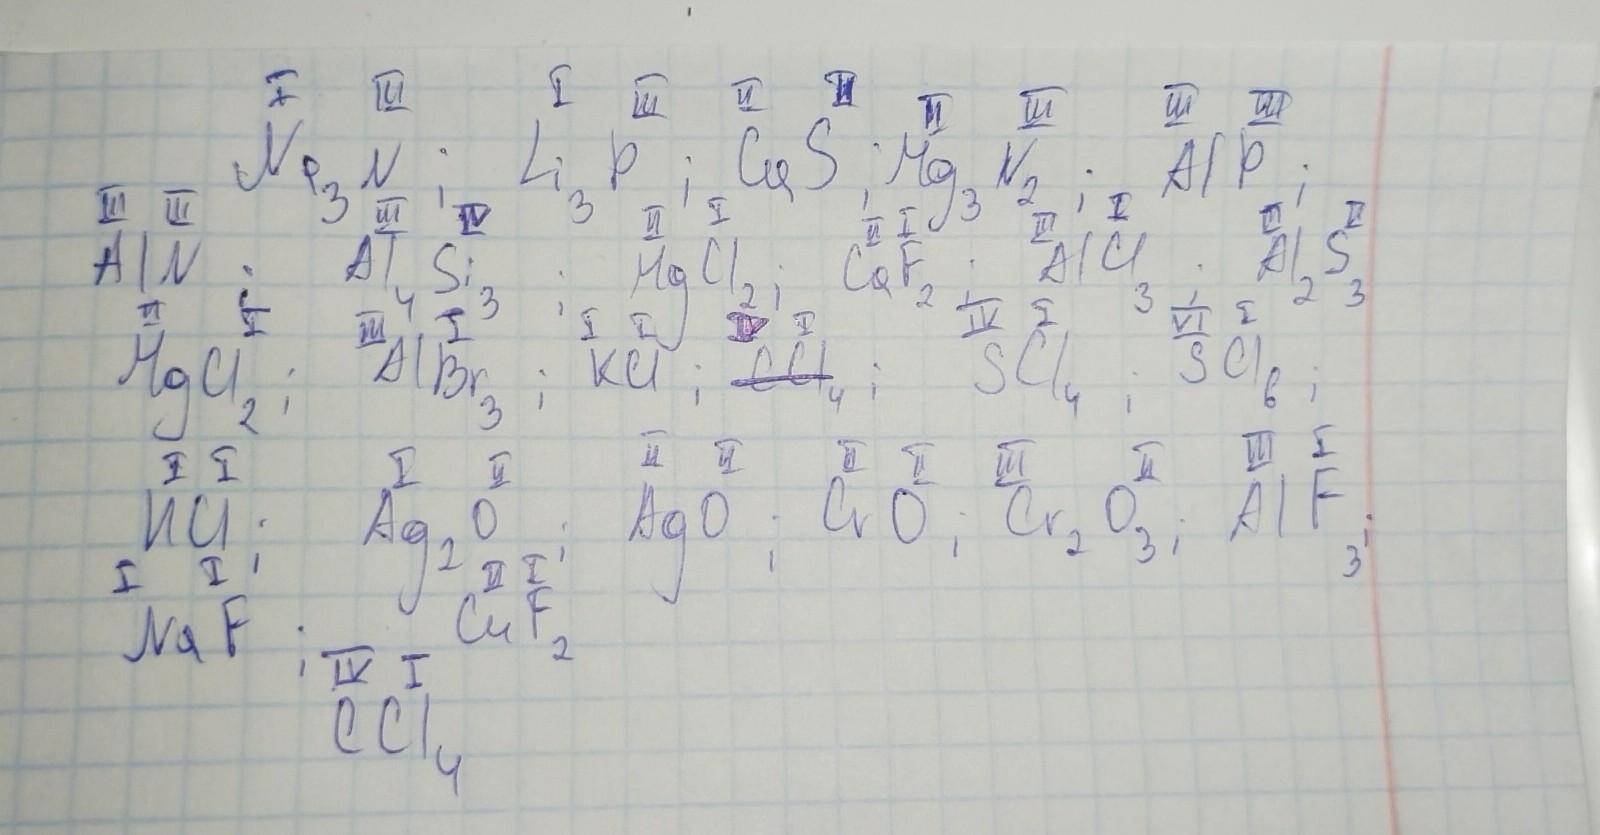 I III I III II II II III III III
Na₃N ; Li₃P ; CaS ; Mg₃N₂ ; AlP ;
III III III IV II I II I III I III II
AlN ; Al₄Si₃ ; MgCl₂ ; CaF₂ ; AlCl₃ ; Al₂S₃
II I III I I I IV I IV I VI I
MgCl₂ ; AlBr₃ ; KCl ; CCl₄ ; SCl₄ ; SCl₆ ;
I I I II II II II II III II III I
HCl ; Ag₂O ; AgO ; CrO ; Cr₂O₃ ; AlF₃ ;
I I II I
NaF ; CuF₂
IV I
CCl₄